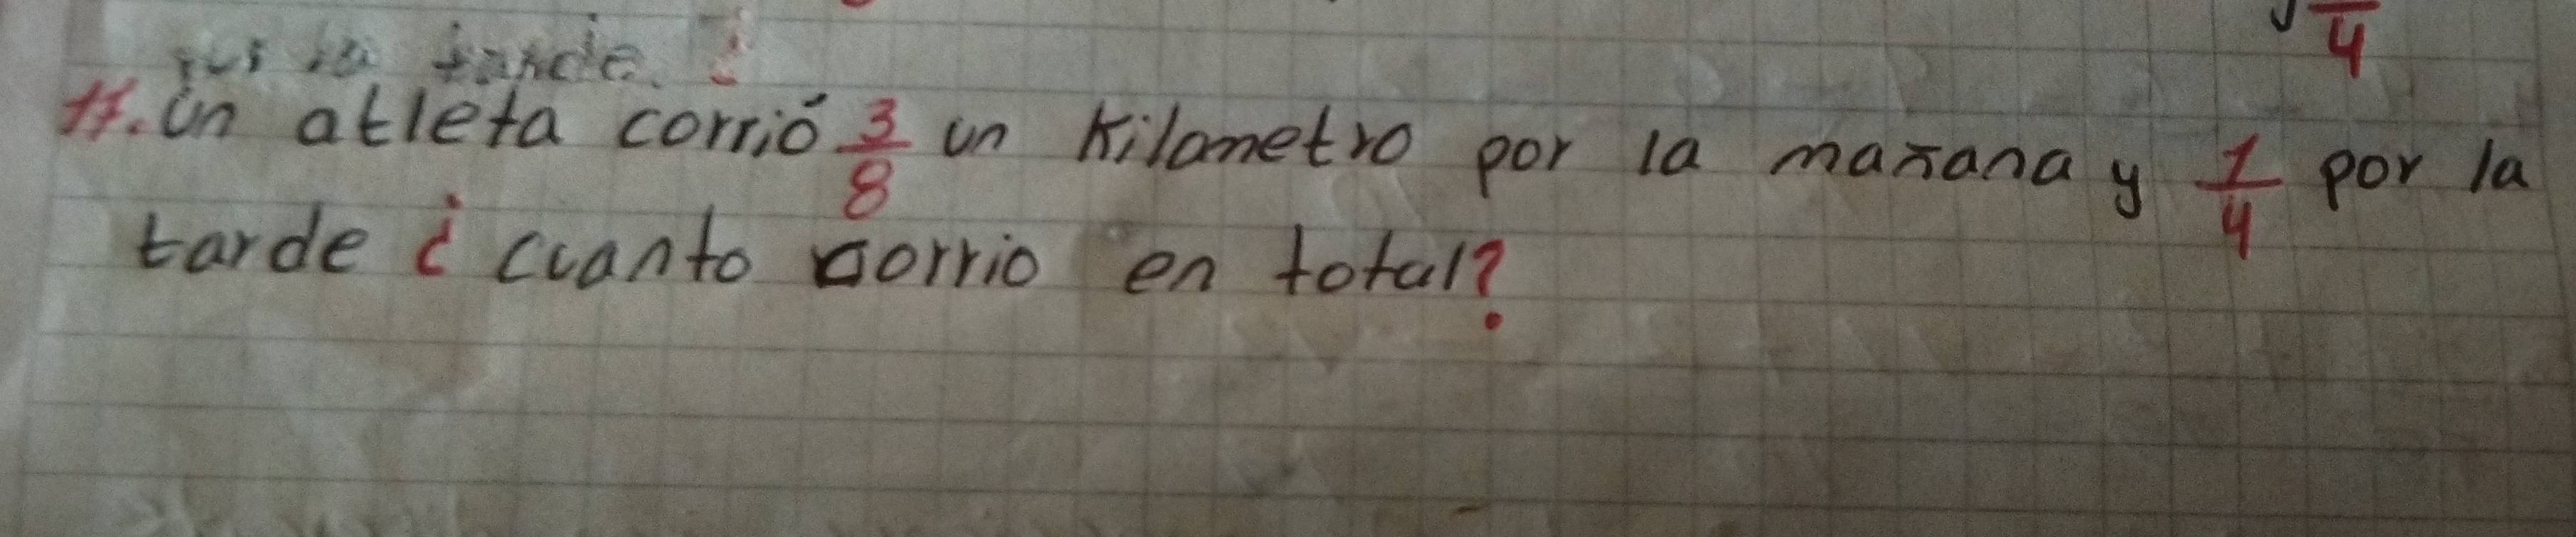 4
tarde. ¿
11. Un atleta corrió 3/8 un Kilometro por la mañana y 1/4 por la
tarde ¿ cuanto corrio en total?